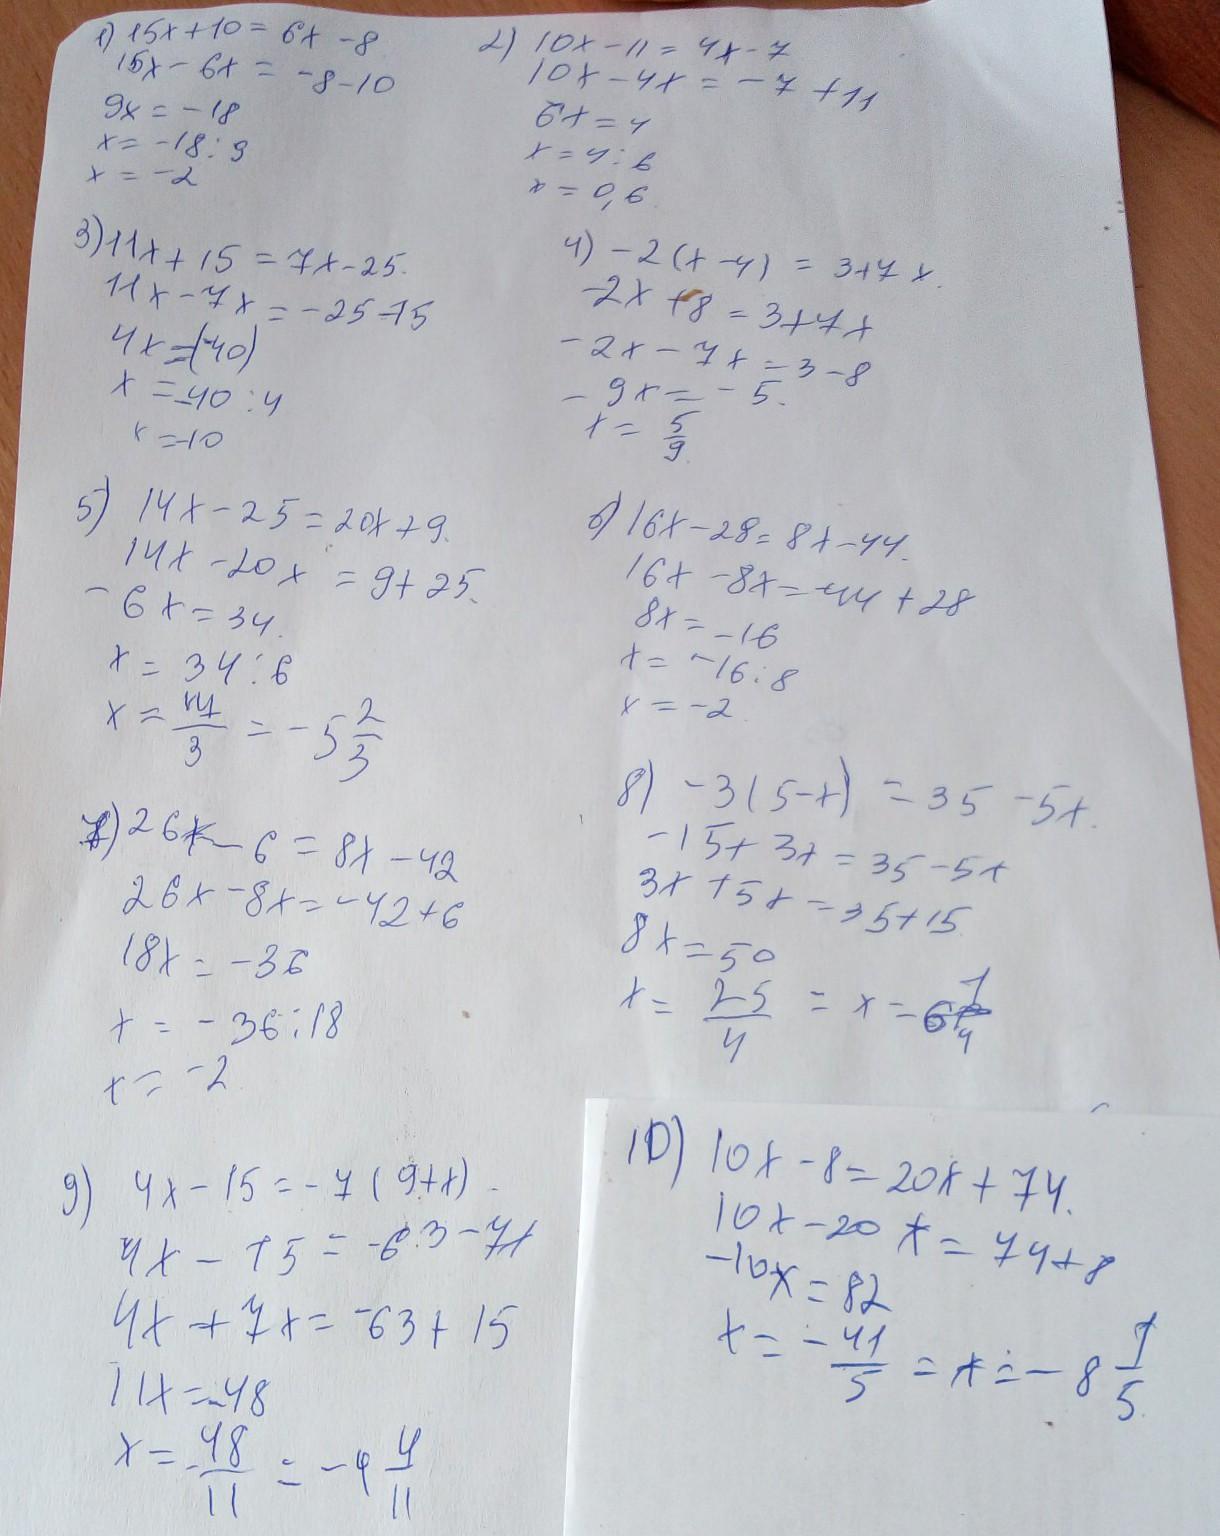 1) 15x+10 = 6x -8
15x - 6x = -8-10
9x = -18
x = -18:9
x = -2
2) 10x-11 = 4x-7
10x-4x = -7+11
6x = 4
x = 4:6
x = 0,6
3) 11x+15 = 7x-25.
11x-7x = -25-15
4x = (-40)
x = -40:4
x = -10
4) -2(x-4) = 3+7x.
-2x+8 = 3+7x
-2x-7x = 3-8
-9x = -5.
x = 5/9.
5) 14x-25 = 20x+9.
14x-20x = 9+25.
-6x = 34.
x = 34:6
x = 17/3 = -5 2/3
6) 16x-28 = 8x-44.
16x-8x = -44+28
8x = -16
x = -16:8
x = -2
7) 26x-6 = 8x-42
26x-8x = -42+6
18x = -36
x = -36:18
x = -2
8) -3(5-x) = 35-5x.
-15+3x = 35-5x
3x+5x = 35+15
8x = 50
x = 25/4 = x = 6 1/4
9) 4x-15 = -7(9+x)
4x-15 = -63-7x
4x+7x = -63+15
11x = -48
x = -48/11 = -4 4/11
10) 10x-8 = 20x+74.
10x-20x = 74+8
-10x = 82
x = -41/5 = x = -8 1/5.